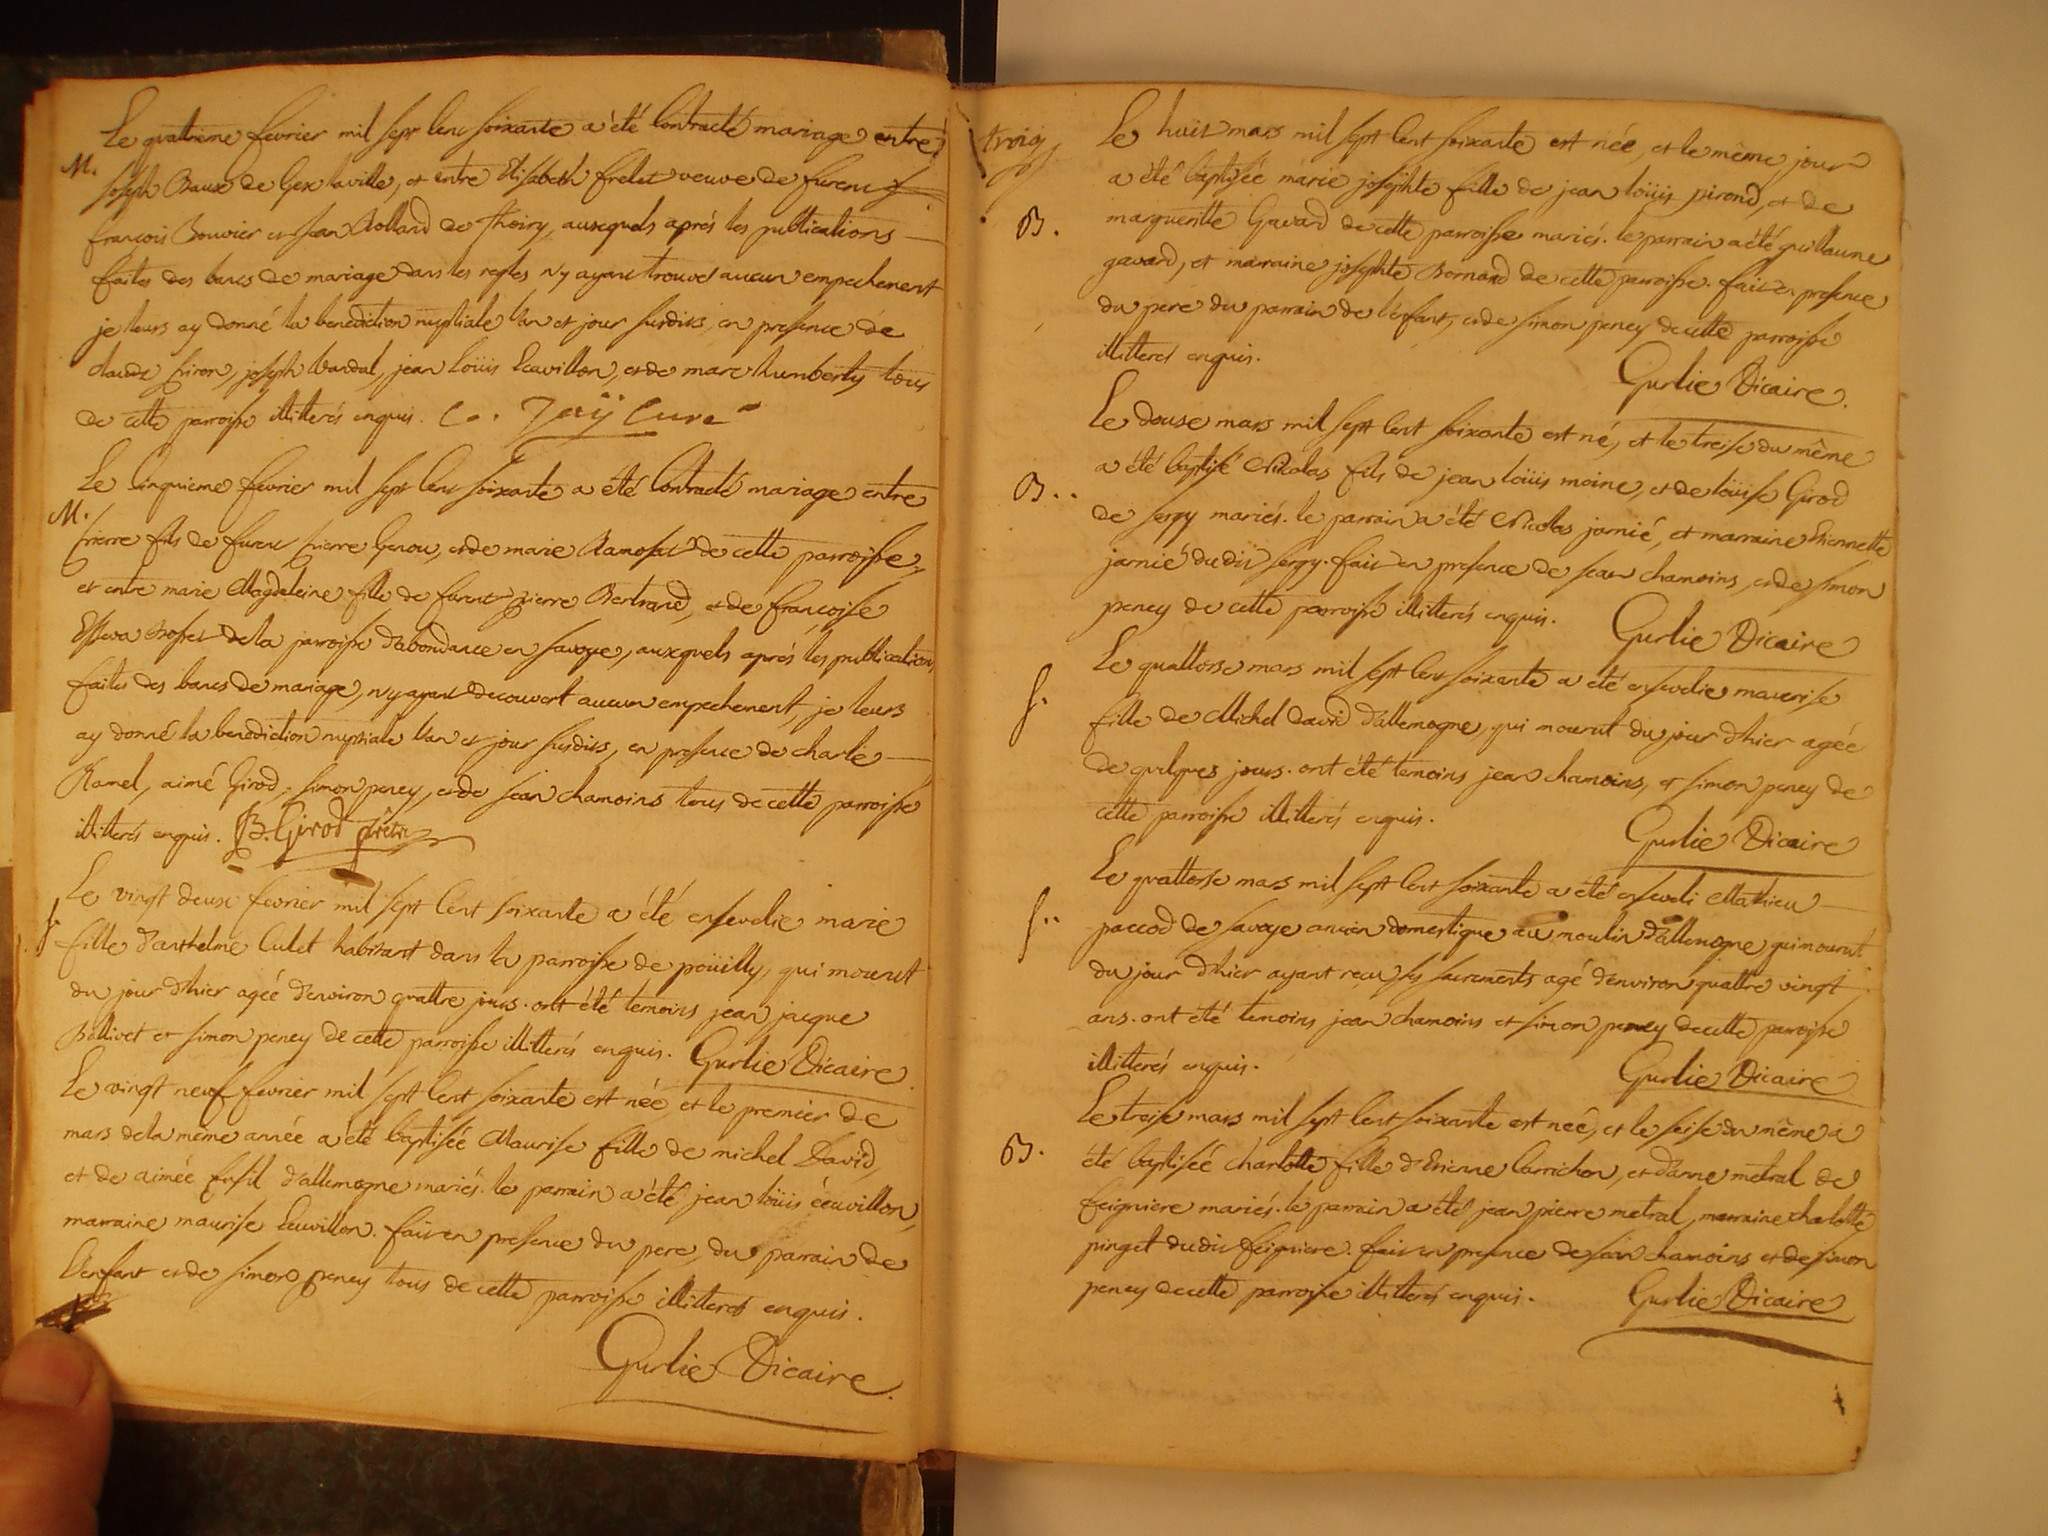 Le quattrieme fevrier mil sept cent soixante a été contracté mariage entre
M.
joseph Baux de Gex la ville, et entre Elisabeth frelet veuve de furent
françois Bouvier et jean Rolland de Thoiry, auxquels aprés les publications
faites des bancs de mariage dans les regles n'y ayant trouvé aucun empechement
je leurs ay donné la benediction nuptiale l'an et jour susdits, en presence de
claude Piron, joseph Vandal, jean loüis Ecuvillon, et de marc humberty tous
de cette parroisse illitterés enquis. Jaÿ Curé
Le cinquieme fevrier mil sept cent soixante a été contracté mariage entre
M.
Pierre fils de furent Pierre Genou, et de marie Ramosat de cette parroisse,
et entre marie Magdeleine fille de furent pierre Bertrand, et de françoise
Esseva Brosset de la parroisse d'abondance en savoye, auxquels aprés les publications
faites des bancs de mariage, n'y ayant decouvert aucun empechement, je leurs
ay donné la benediction nuptiale l'an et jour susdits, en presence de charle
Ramel, aimé Girod, simon peney, et de jean chamoins tous de cette parroisse
illitterés enquis. B. Girod prêtre
Le vingt deux fevrier mil sept cent soixante a été ensevelie marie
S.
fille d'anthelme Culet habitant dans la parroisse de poüilly, qui mourut
du jour d'hier agée d'environ quattre jours. ont été temoins jean jacque
Ballivet et simon peney de cette parroisse illitterés enquis. Gurlie Vicaire
Le vingt neuf fevrier mil sept cent soixante est née, et le premier de
mars de la même année a été baptisée Maurise fille de michel David,
et de aimée fusil d'allemogne mariés. le parrain a été jean loüis écuvillon,
marraine maurise Ecuvillon. fait en presence du pere, du parrain de
l'enfant et de simon peney tous de cette parroisse illitterés enquis.
Gurlie Vicaire.
trois
Le huit mars mil sept cent soixante est née, et le même jour
a été baptisée marie josephte fille de jean loüis pirond, et de
B.
margueritte Gavard de cette parroisse mariés. le parrain a été guillaume
gavard, et marraine josephte Bornand de cette parroisse. fait en presence
du pere du parrain de l'enfant, et de simon peney de cette parroisse
illitterés enquis.
Gurlie Vicaire.
Le douse mars mil sept cent soixante est né, et le treise du même
B..
a été baptisé Nicolas fils de jean loüis moine, et de loüise Girod
de sergy mariés. le parrain a été Nicolas jarnié, et marraine Etiennette
jarnié du dit sergy. fait en presence de jean chamoins, et de simon
peney de cette parroisse illitterés enquis.
Gurlie Vicaire
Le quattorse mars mil sept cent soixante a été ensevelie maurise
S.
fille de Michel david d'allemogne, qui mourut du jour d'hier agée
de quelques jours. ont été temoins jean chamoins, et simon peney de
cette parroisse illitterés enquis.
Gurlie Vicaire
Le quattorse mars mil sept cent soixante a été enseveli Mathieu
S..
paccod de savoye ancien domestique au moulin d'allemogne qui mourut
du jour d'hier ayant reçu ses sacrements agé d'environ quattre vingt
ans. ont été temoins jean chamoins et simon peney de cette parroisse
illitterés enquis.
Gurlie Vicaire
Le treise mars mil sept cent soixante est neé, et le seise du même a
B.
été baptiseé charlotte fille d'Etienne Carrichon, et d'anne metral de
feigniere mariés. le parrain a été jean pierre metral, marraine charlotte
pinget du dit feigniere. fait en presence de jean chamoins et de simon
peney de cette parroisse illitterés enquis.
Gurlie Vicaire